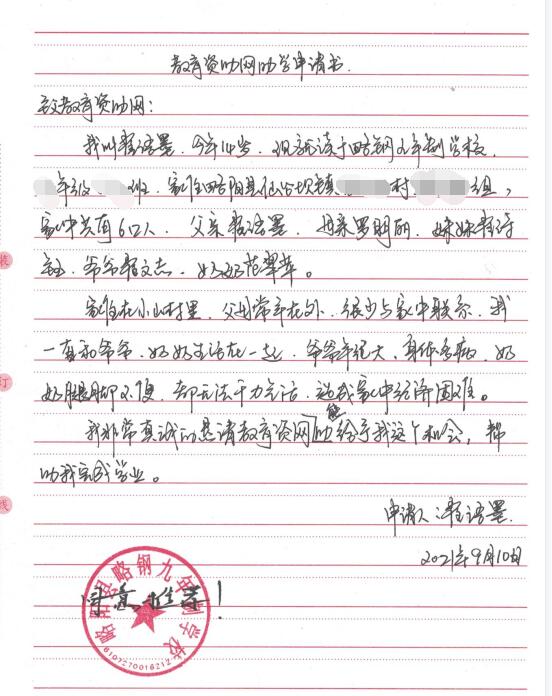 教育资助网助学申请书
敬教育资助网：
我叫翟语墨，今年14岁，现就读于略钢九年制学校，
年级 班，家住略阳县仙台坝镇 村 组，
家中共有6口人，父亲翟语墨，母亲罗明丽，妹妹翟诗
钰，爷爷翟文志，奶奶范翠萍。
家住在小山村里，父母常年在外，很少与家中联系，我
一直和爷爷、奶奶生活在一起，爷爷年纪大，身体多病，奶
奶腿脚不便，却无法干力气活，造成家中经济困难。
我非常真诚的恳请教育资网助能给予我这个机会，帮
助我完成学业。
申请人：翟语墨
2021年9月10日
同意推荐！
略阳县略钢九年制学校
6107270016212
装
订
线